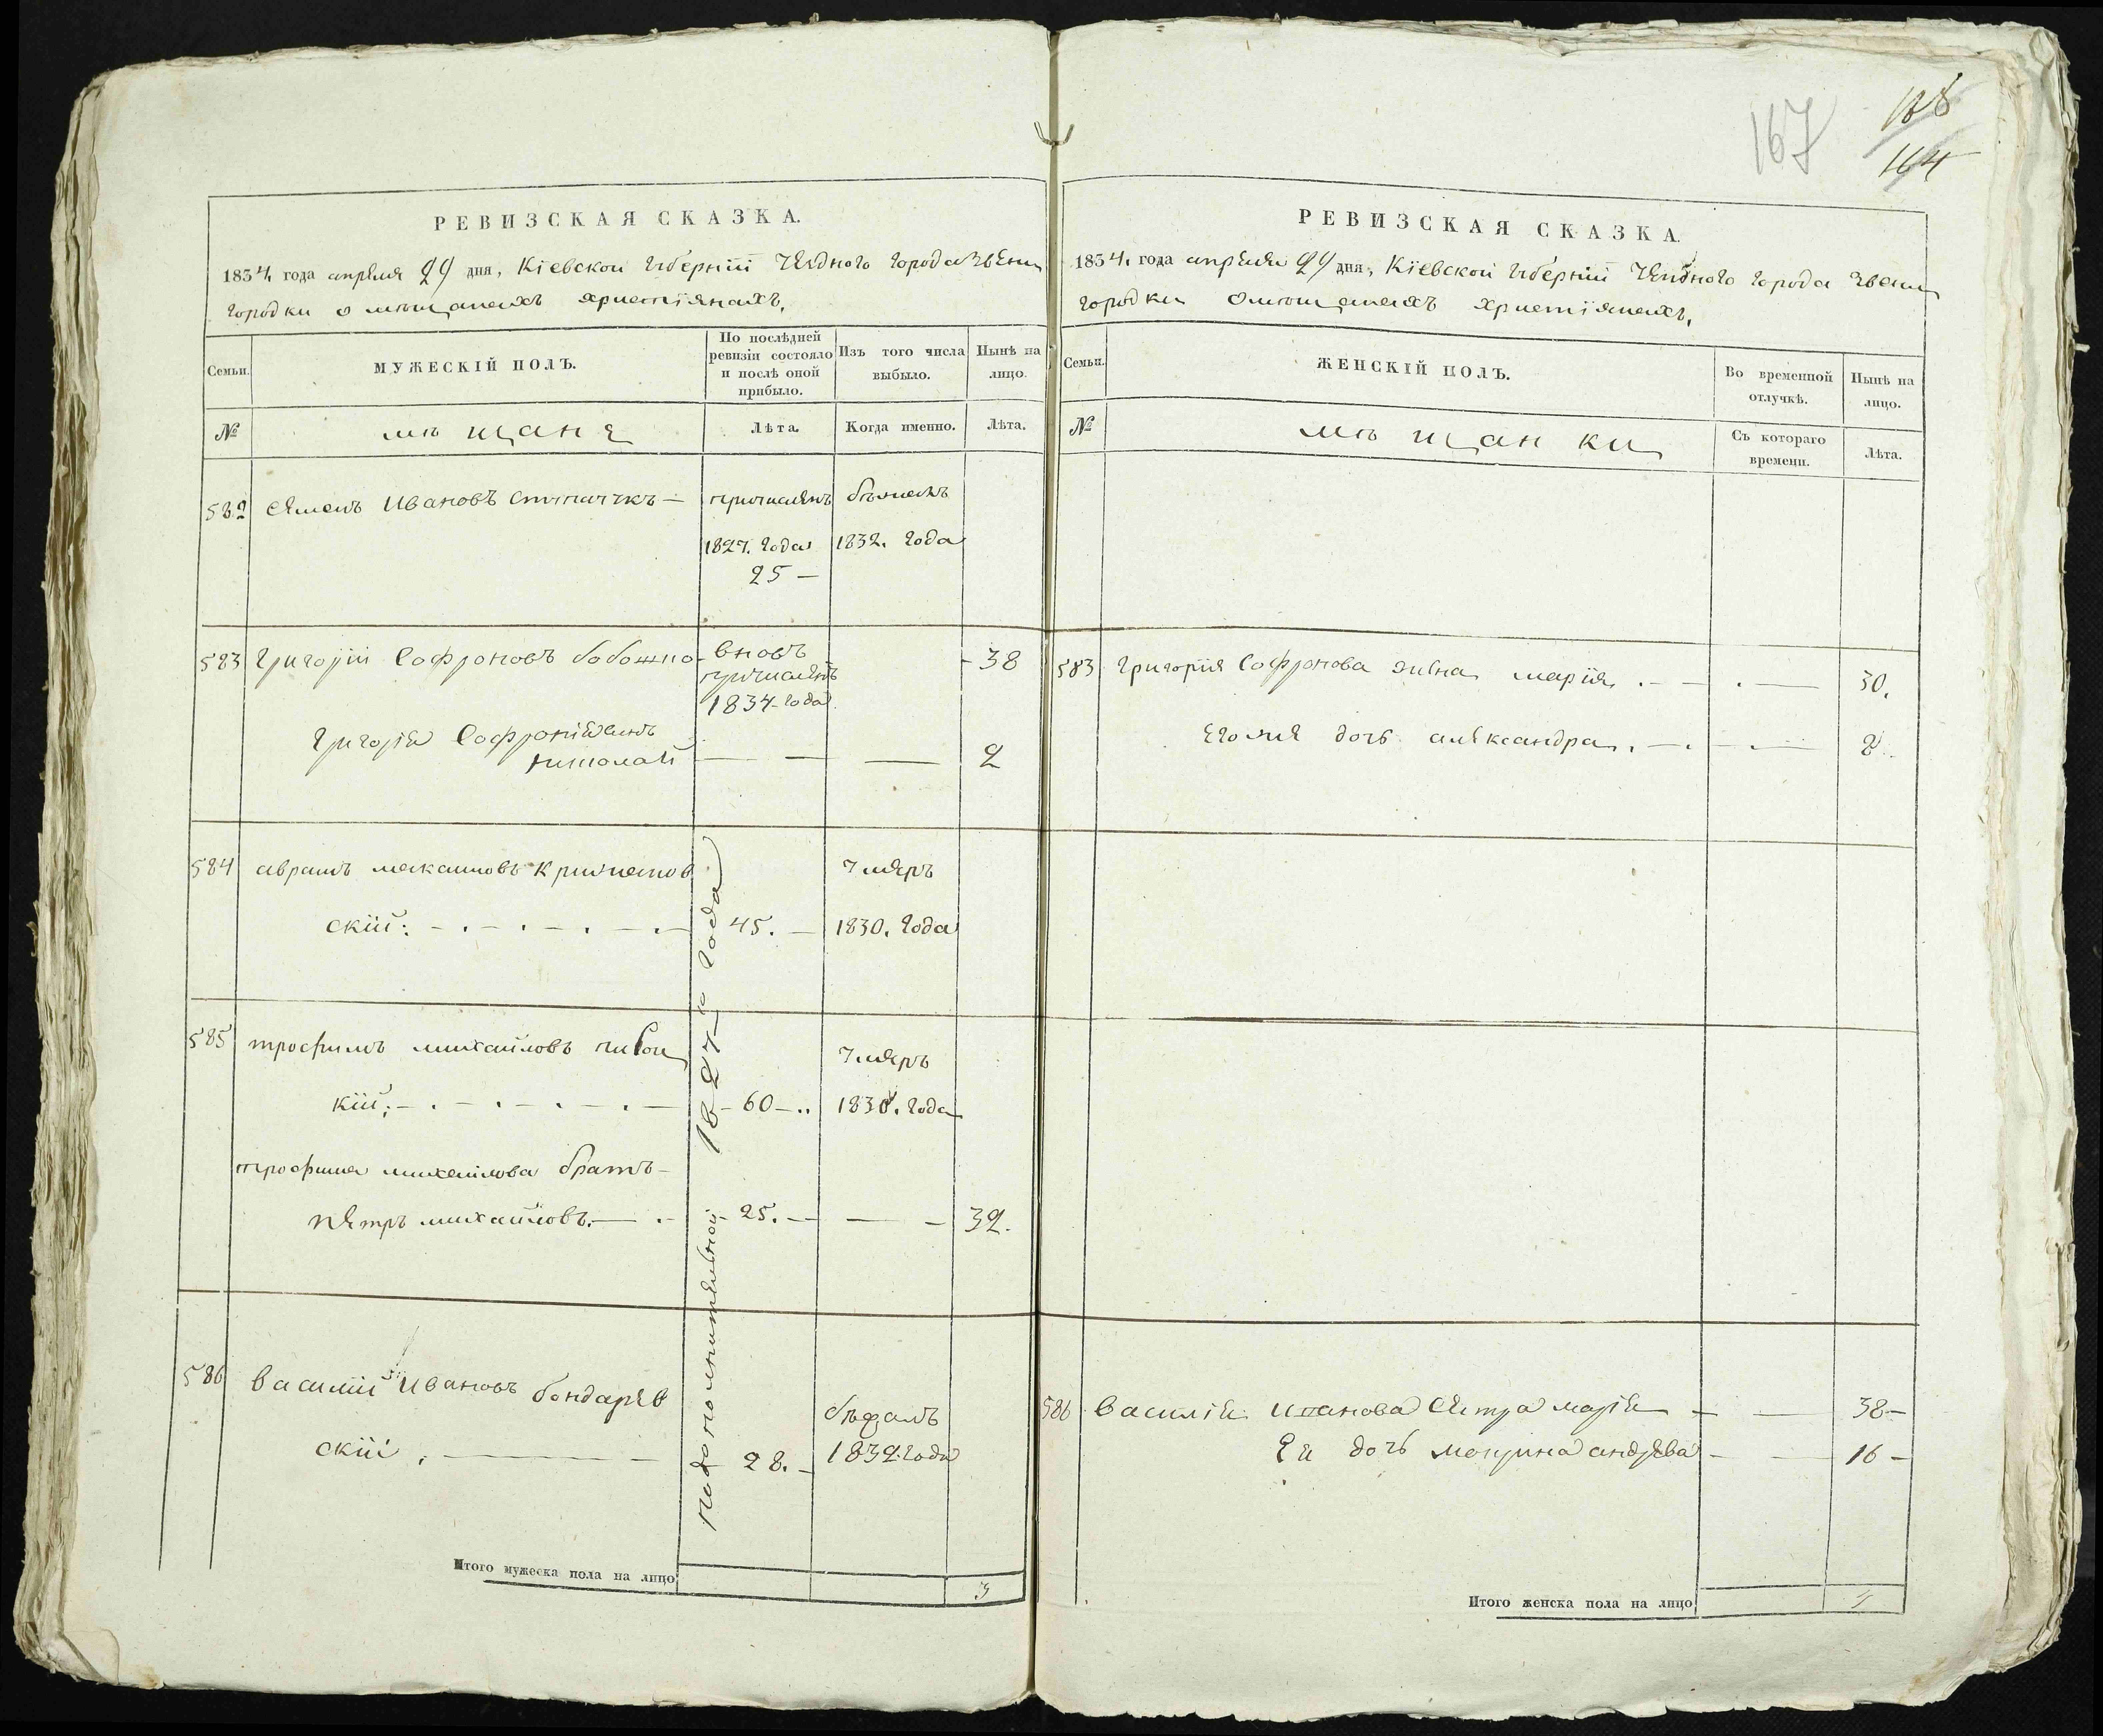 167
164
РЕВИЗСКАЯ СКАЗКА.
1834. года апреля 29 дня, Кіевской Губерніи Уезднаго города Звени
городки о мѣщанахъ христіянахъ.
Семьи.
МУЖЕСКІЙ ПОЛЪ.
По послѣдней ревизіи состояло и послѣ оной прибыло.
Изъ того числа выбыло.
Нынѣ на лицо.
№
мѣщане
Лѣта.
Когда именно.
Лѣта.
582 Семенъ Ивановъ причисленъ
1827. года 1832. года
25 —
583 Григорій Софроновъ вновъ 38
причисленъ
1834 года
Григорія Софронія сынъ
Николай — — — 2
584 аврамъ умеръ
скій: 45. — 1830. года
585 трофимъ михайловъ умеръ
кій: — 60 — 183 . года
трофима михайлова братъ —
петръ михайловъ. — 25. — — 32.
586 василій Ивановъ бондарев
скій. — 28. — 1832. года
по дополнительной 1827 года
Итого мужеска пола на лицо 3
РЕВИЗСКАЯ СКАЗКА.
1834. года апреля 29 дня, Кіевской Губерніи Уезднаго города Звени
городки о мѣщанахъ христіянахъ.
Семьи.
ЖЕНСКІЙ ПОЛЪ.
Во временной отлучкѣ.
Нынѣ на лицо.
№
мѣщанки
Съ котораго времени.
Лѣта.
583 Григорія Софронова жена марія. — — 30.
его же дочь александра. — —
586 Василія Иванова сестра марія — — 38 —
Ея дочь андрева — — 16 —
Итого женска пола на лицо